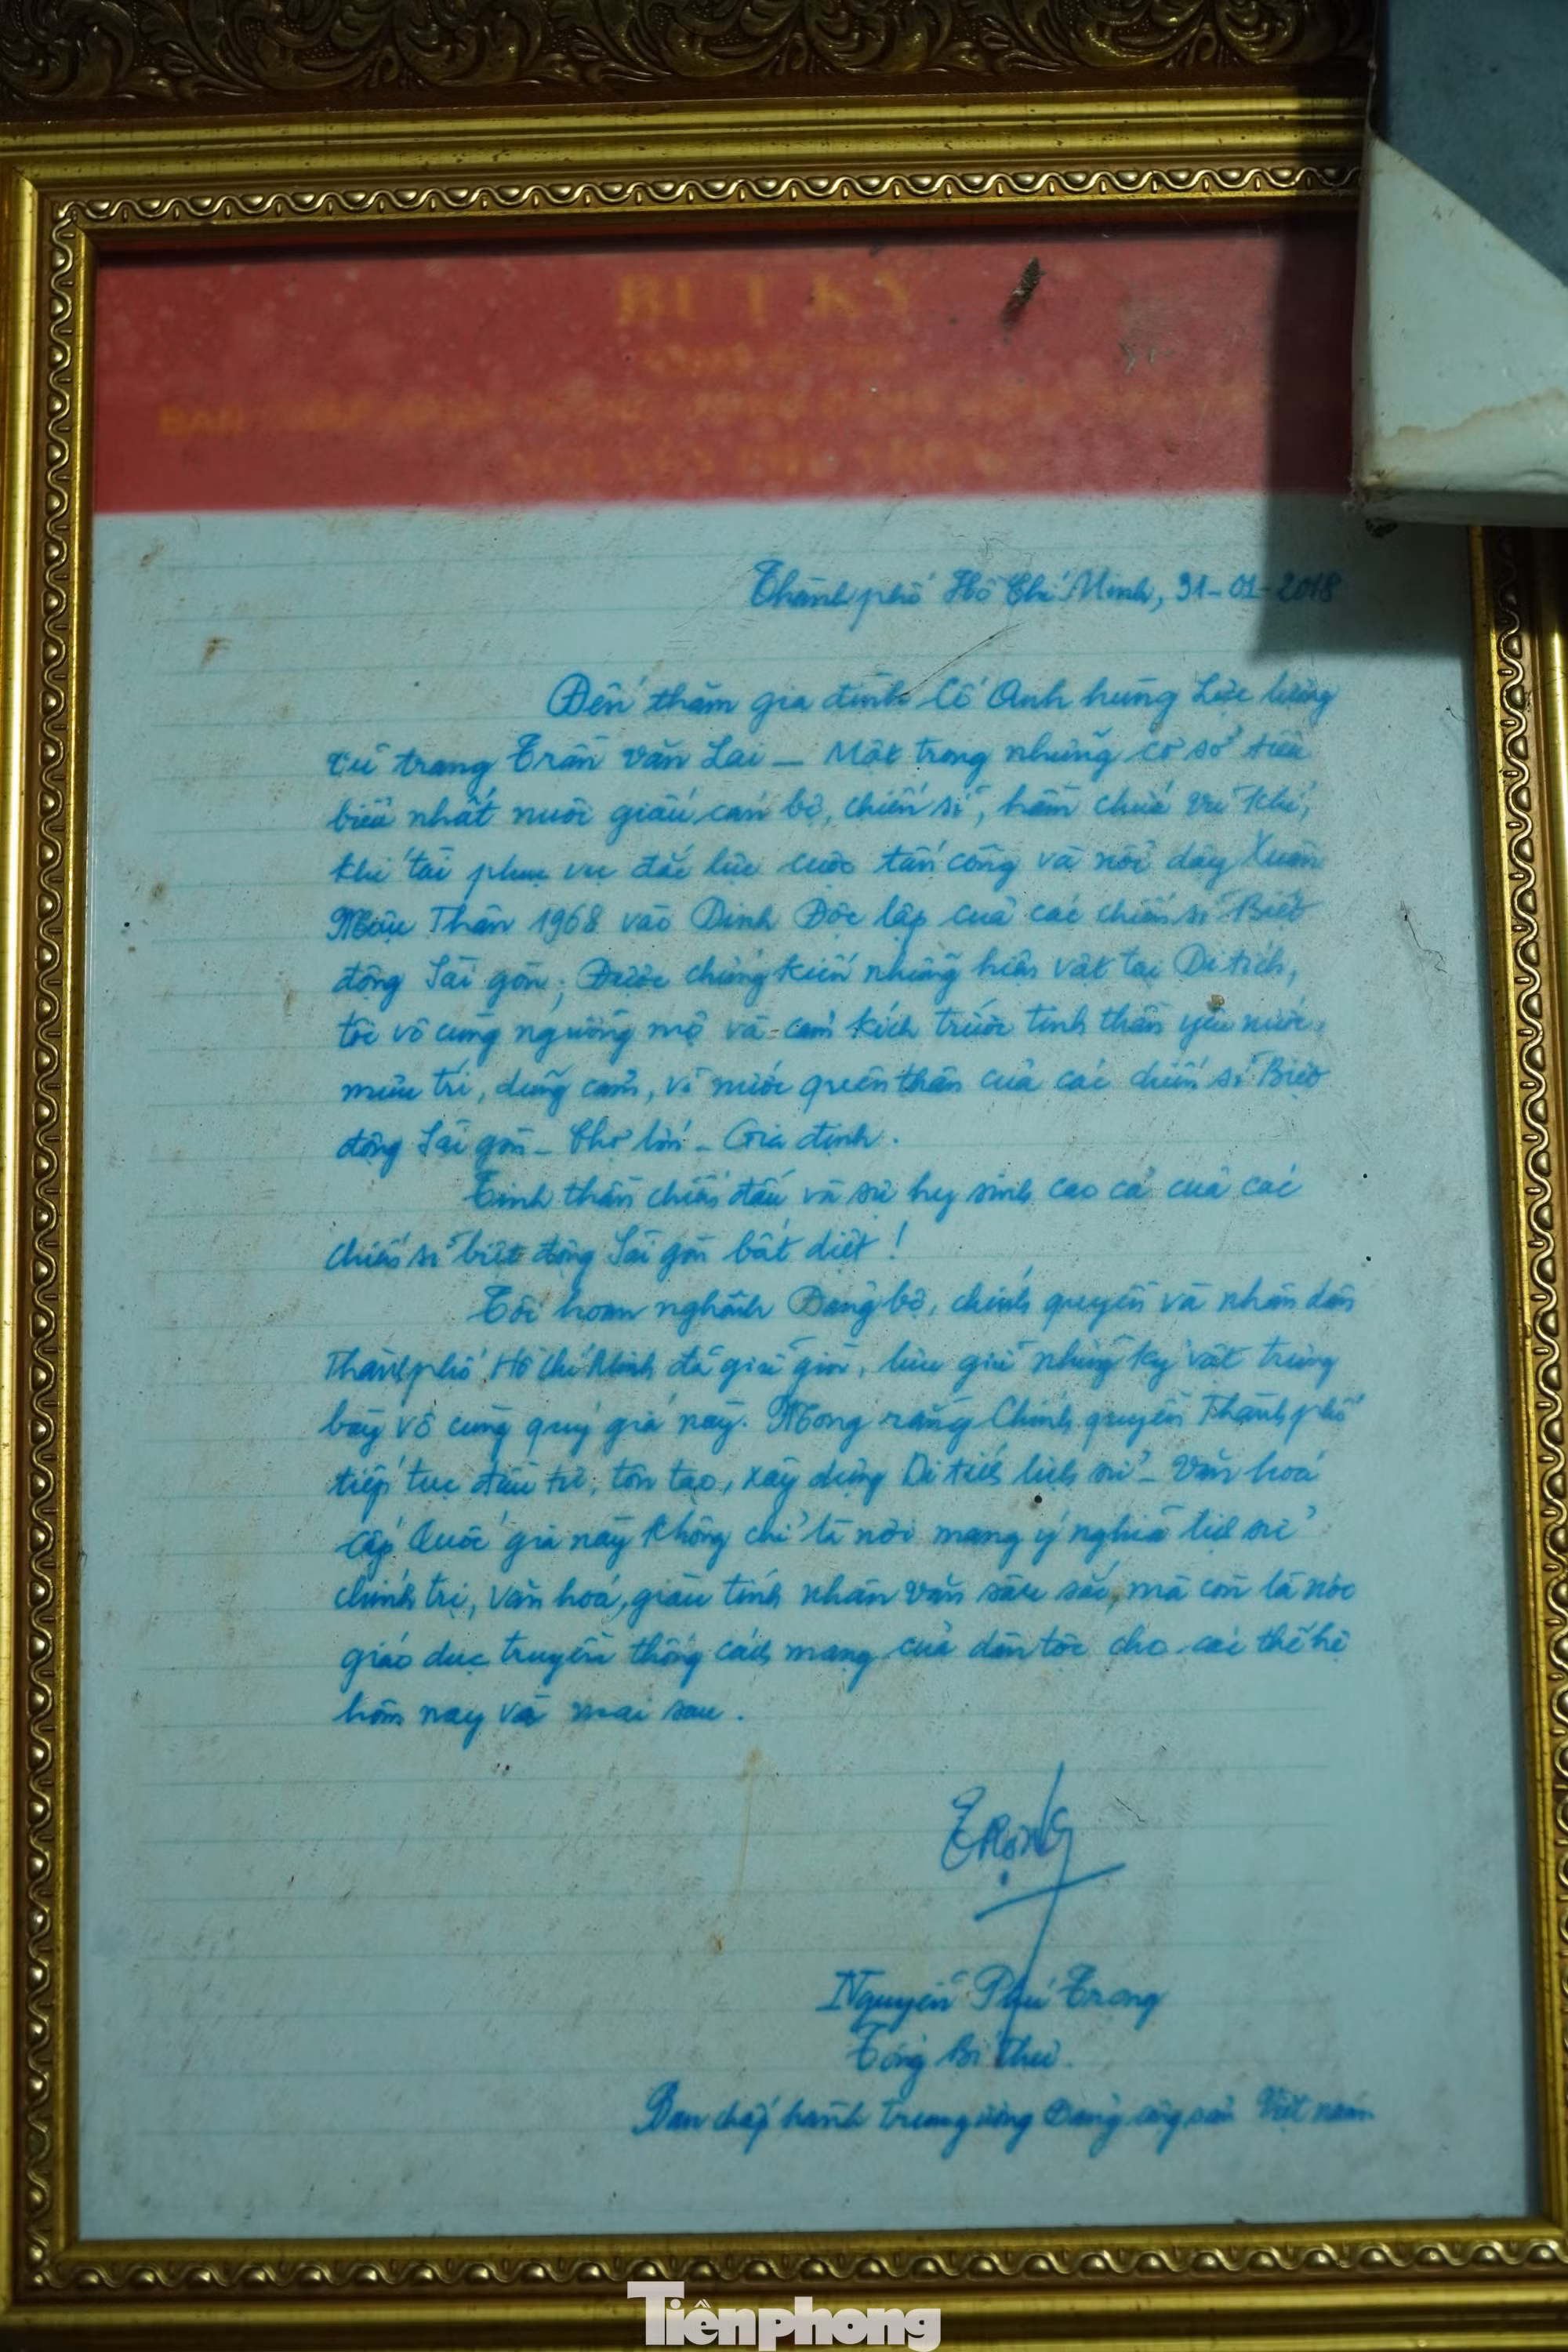 BÚT KÝ
Thành phố Hồ Chí Minh, 31-01-2018
Đến thăm gia đình Cố Anh hùng Lực lượng
vũ trang Trần Văn Lai – Một trong những cơ sở tiêu
biểu nhất nuôi giấu cán bộ, chiến sĩ, hầm chứa vũ khí,
khí tài phục vụ đắc lực cuộc tấn công và nổi dậy Xuân
Mậu Thân 1968 vào Dinh Độc lập của các chiến sĩ Biệt
động Sài gòn; Được chứng kiến những hiện vật tại Di tích,
tôi vô cùng ngưỡng mộ và cảm kích trước tinh thần yêu nước,
mưu trí, dũng cảm, vì nước quên thân của các chiến sĩ Biệt
động Sài gòn – Chợ lớn – Gia định.
Tinh thần chiến đấu và sự hy sinh cao cả của các
chiến sĩ biệt động Sài gòn bất diệt!
Tôi hoan nghênh Đảng bộ, chính quyền và nhân dân
Thành phố Hồ Chí Minh đã giữ gìn, lưu giữ những kỷ vật trưng
bày vô cùng quý giá này. Mong rằng Chính quyền Thành phố
tiếp tục đầu tư, tôn tạo, xây dựng Di tích lịch sử – Văn hoá
cấp Quốc gia này không chỉ là nơi mang ý nghĩa lịch sử
chính trị, văn hoá, giàu tính nhân văn sâu sắc, mà còn là nơi
giáo dục truyền thống cách mạng của dân tộc cho các thế hệ
hôm nay và mai sau.
Trọng
Nguyễn Phú Trọng
Tổng Bí Thư
Ban chấp hành trung ương Đảng cộng sản Việt nam
Tiền phong